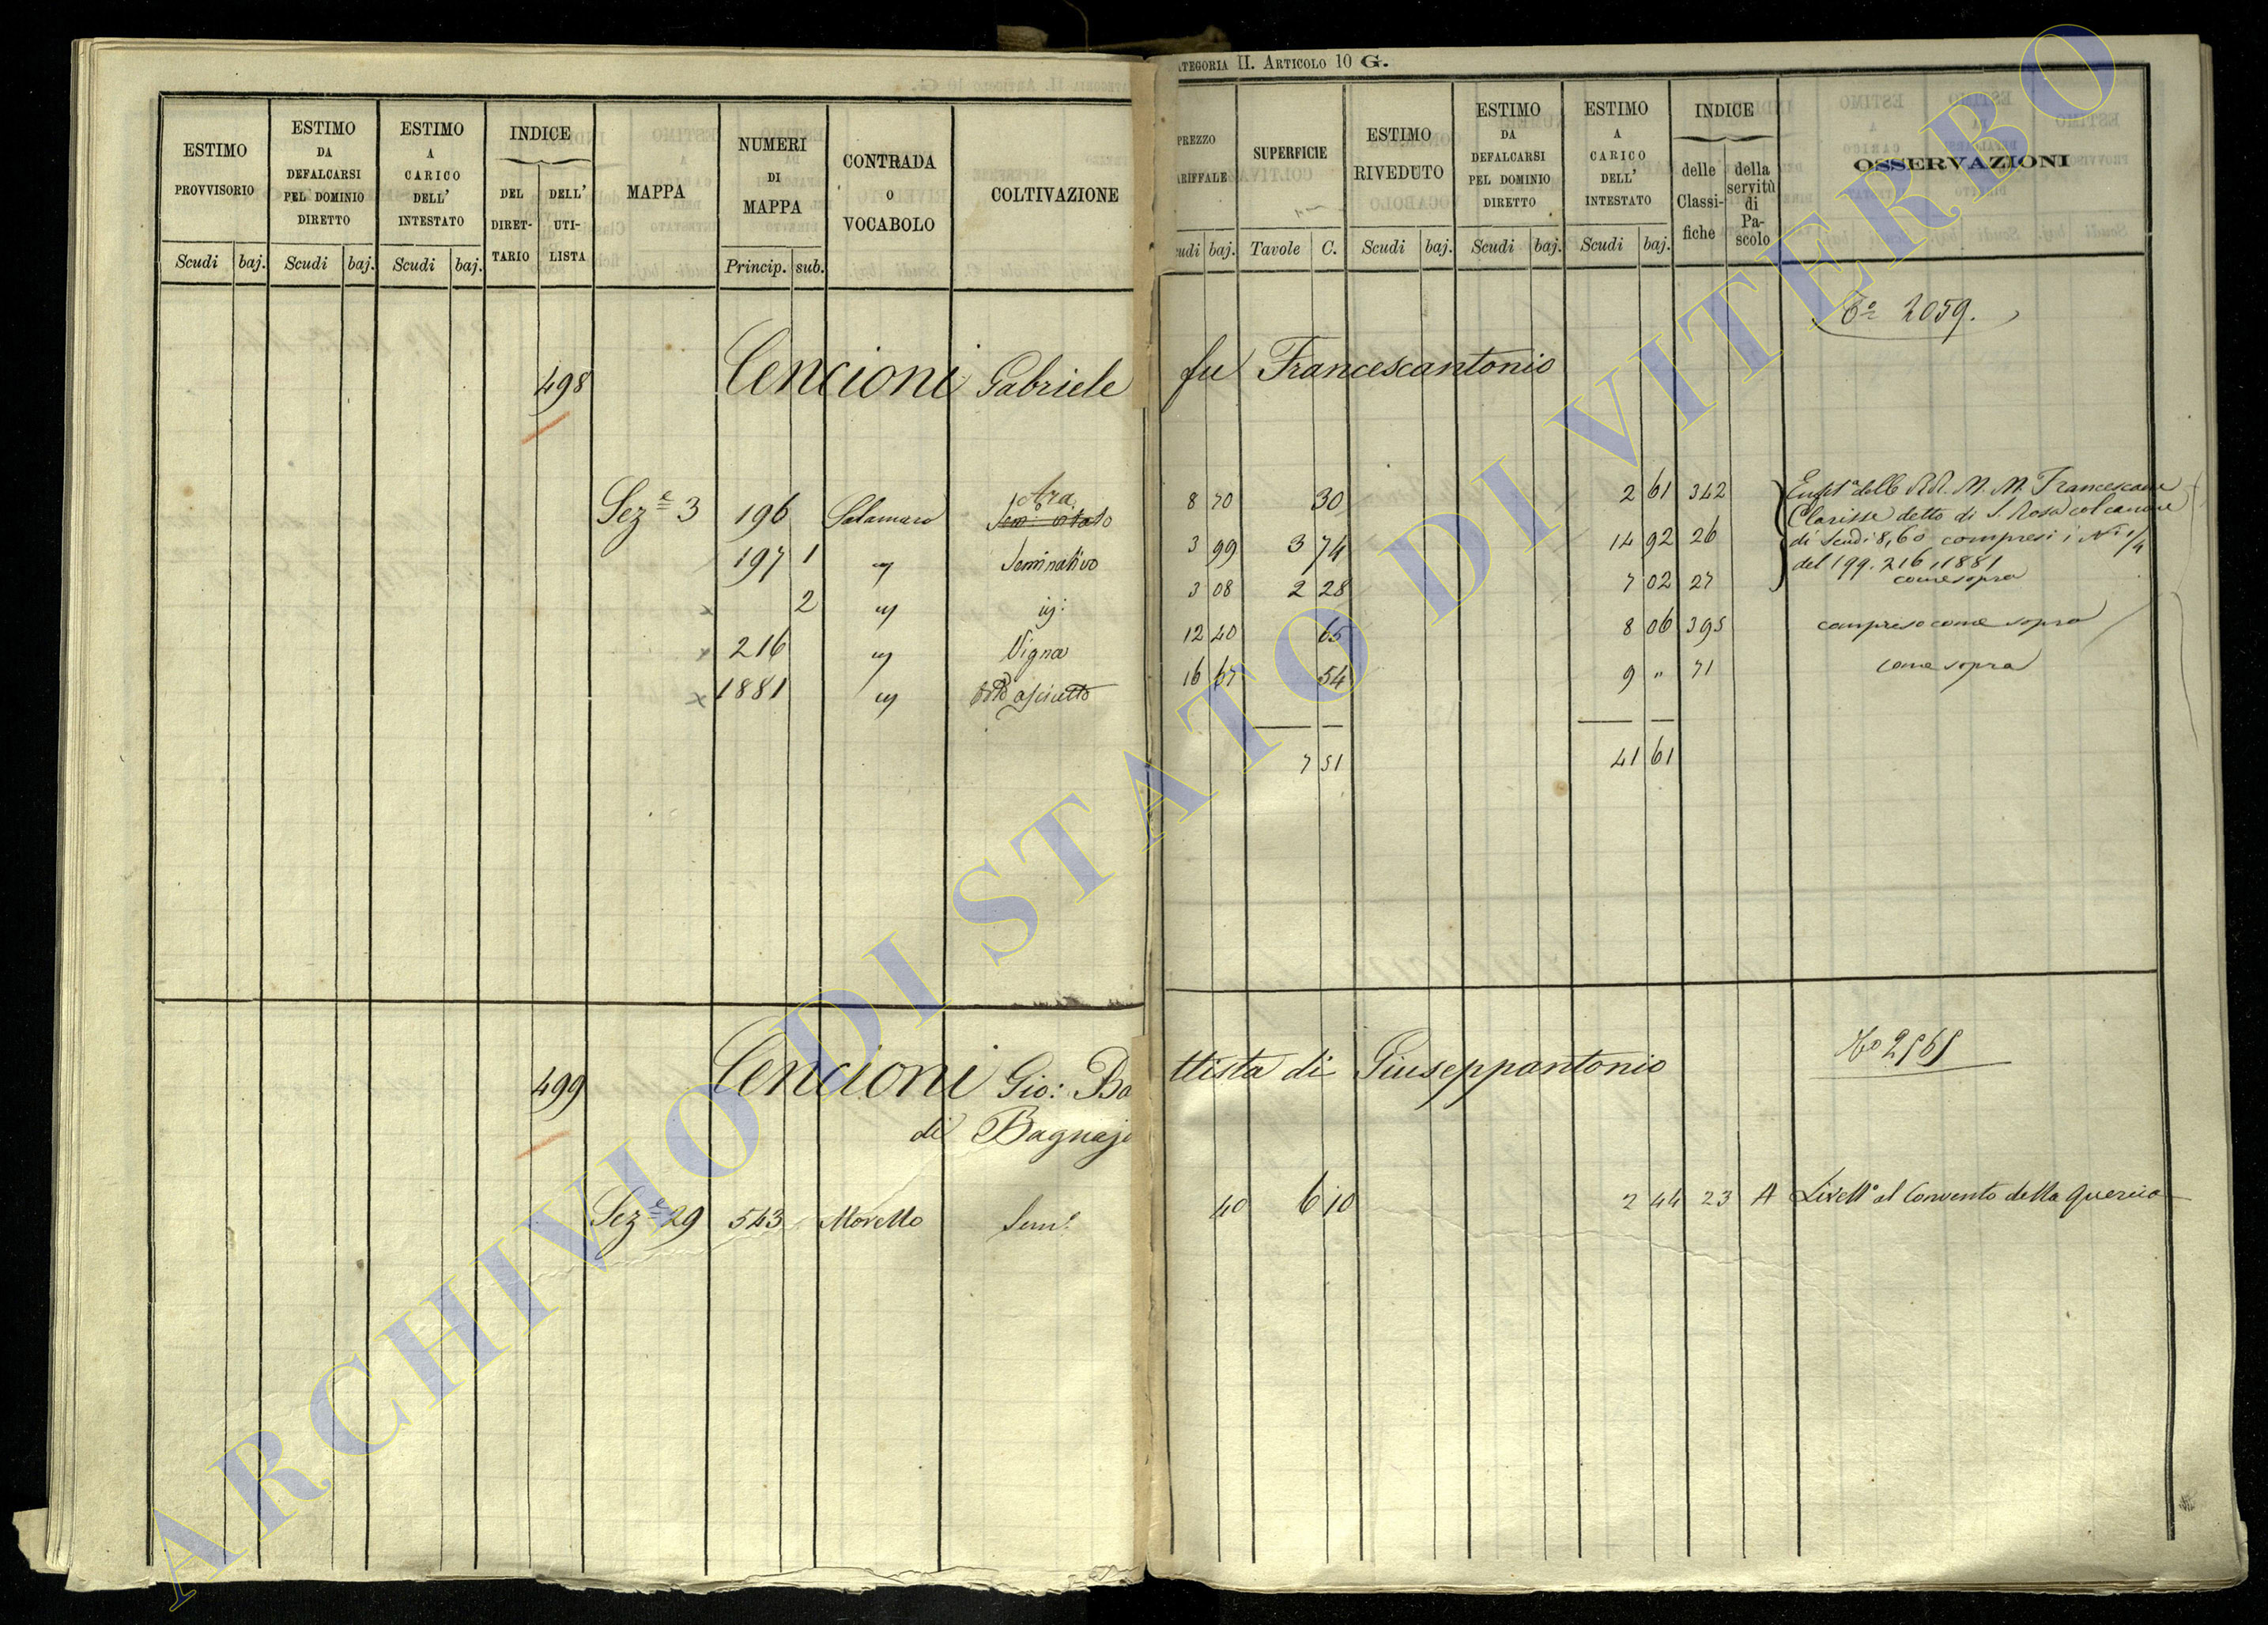 ATEGORIA II. ARTICOLO 10 G.
ESTIMO PROVVISORIO
ESTIMO DA DEFALCARSI PEL DOMINIO DIRETTO
ESTIMO A CARICO DELL' INTESTATO
INDICE
DEL DIRET-TARIO
DELL' UTI-LISTA
MAPPA
NUMERI DI MAPPA
CONTRADA O VOCABOLO
COLTIVAZIONE
Scudi baj. Scudi baj. Scudi baj. Princip. sub.
PREZZO ARIFFALE
SUPERFICIE
ESTIMO RIVEDUTO
ESTIMO DA DEFALCARSI PEL DOMINIO DIRETTO
ESTIMO A CARICO DELL' INTESTATO
INDICE
delle Classi-fiche
della servitù di Pa-scolo
OSSERVAZIONI
udi baj. Tavole C. Scudi baj. Scudi baj. Scudi baj.
2059.
498 Cencioni Gabriele fu Francescantonio
Ara
Sez.e 3 196 Salamaro 8 70 30 2 61 342
197 1 " Seminativo 3 99 3 74 14 92 26
2 " id: 3 08 2 28 7 02 27
216 " Vigna 12 40 65 8 06 395
1881 " Orto asciutto 16 67 54 9 " 71
7 51 41 61
Enfit.a delle RR. M. M. Francescane
Clarisse detto di S. Rosa col canone
di Scudi 8,60 compresi i N.i 1/4
del 199. 216, 1881
come sopra
compreso come sopra
come sopra
No 2565
499 Cencioni Gio: Battista di Giuseppantonio
di Bagnaja
Sez.e 29 543 Morello Sem.o 40 6 10 2 44 23 A Livell.o al Convento della Quercia
ARCHIVIO DI STATO DI VITERBO